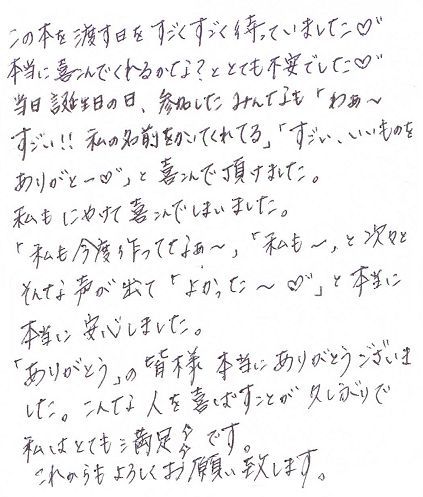 この本を渡す日をすごくすごく待っていました♡
本当に喜こんでくれるかな?ととても不安でした♡
当日誕生日の日、参加したみんなも「わぁ〜
すごい!!私の名前をかいてくれてる」「すごい、いいものを
ありがとー♡」と喜こんで頂けました。
私もにやけて喜こんでしまいました。
「私も今度作ってなぁ〜」、「私も〜」と次々と
そんな声が出て「よかった〜♡」と本当に
本当に安心しました。
「ありがとう」の皆様本当にありがとうございま
した。こんな人を喜ばすことが久しぶりで
私はとても満足です。
これからもよろしくお願い致します。